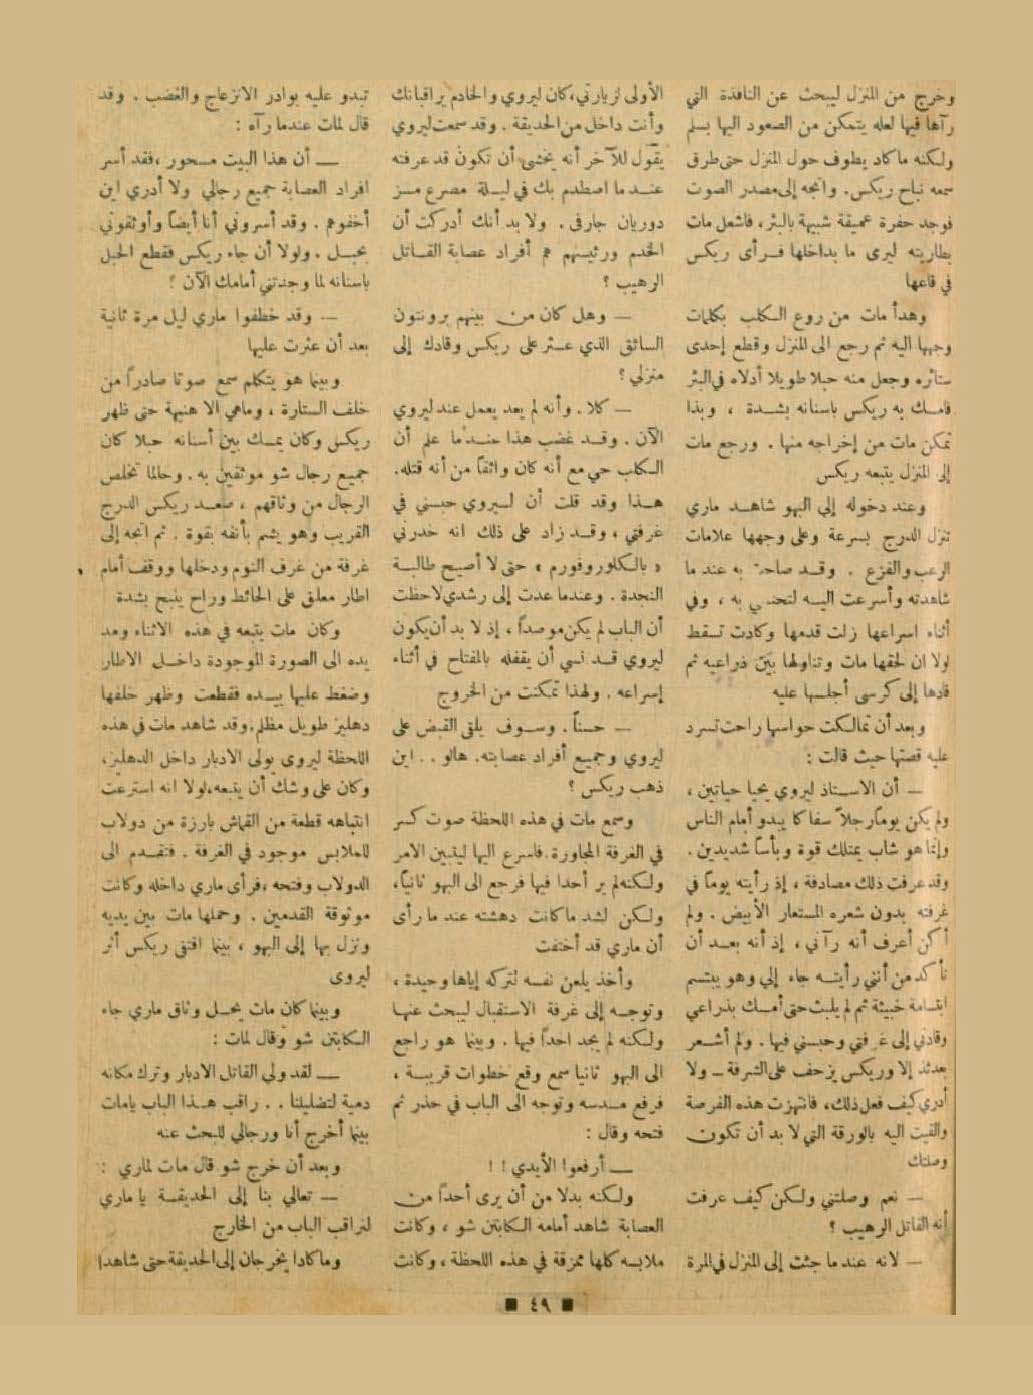 وخرج من المنزل ليبحث عن النافذة التي
رآها فيها لعله يتمكن من الصعود اليها بسلم
ولكنه ما كاد يطوف حول المنزل حتى طرق
سمعه نباح ريكس. واتجه إلى مصدر الصوت
فوجد حفرة عميقة شبيهة بالبئر، فاشعل مات
بطاريته ليرى ما بداخلها فرأى ريكس
في قاعها
وهدأ مات من روع الكلب بكلمات
وجهها اليه ثم رجع الى المنزل وقطع إحدى
ستائره وجعل منه حبلا طويلا أدلاه في البئر
فامسك به ريكس باسنانه بشدة ، وبذا
تمكن مات من إخراجه منها . ورجع مات
إلى المنزل يتبعه ريكس
وعند دخوله إلى البهو شاهد ماري
تنزل الدرج بسرعة وعلى وجهها علامات
الرعب والفزع . وقد صاحت به عند ما
شاهدته وأسرعت اليه لتحتمي به ، وفي
أثناء اسراعها زلت قدمها وكادت تسقط
لولا ان لحقها مات وتناولها بين ذراعيه ثم
قادها إلى كرسى أجلسها عليه
وبعد أن تمالكت حواسها راحت تسرد
عليه قصتها حيث قالت :
— أن الاستاذ ليروي يحيا حياتين ،
ولم يكن يوماً رجلاً سفا كما يبدو أمام الناس
وإنما هو شاب يمتلك قوة وبأساً شديدين .
وقد عرفت ذلك مصادفة ، إذ رأيته يوماً في
غرفته بدون شعره المستعار الأبيض . ولم
أكن أعرف أنه رآني ، إذ أنه بعد أن
تأكد من أنني رأيته جاء إلي وهو يبتسم
ابتسامة خبيثة ثم لم يلبث حتى أمسك بذراعي
وقادني إلى غرفتي وحبسني فيها . ولم أشعر
بعدئذ إلا وريكس يزحف على الشرفة – ولا
أدري كيف فعل ذلك، فانتهزت هذه الفرصة
والقيت اليه بالورقة التي لا بد أن تكون
وصلتك
— نعم وصلتني ولكن كيف عرفت
أنه القاتل الرهيب ؟
— لانه عند ما جئت إلى المنزل في المرة
الأولى لزيارتي، كان ليروي والخادم يراقبانك
وأنت داخل من الحديقة . وقد سمعت ليروي
يقول للآخر أنه يخشى أن تكون قد عرفته
عند ما اصطدم بك في ليلة مصرع مسز
دوريان جارفى . ولا بد أنك أدركت أن
الخدم ورئيسهم هم أفراد عصابة القاتل
الرهيب ؟
— وهل كان من بينهم برونتون
السائق الذي عثر على ريكس وقادك إلى
منزلي ؟
— كلا . وأنه لم يعد يعمل عند ليروي
الآن . وقد غضب هذا عندما علم أن
الكلب حي مع أنه كان واثقاً من أنه قتله.
هذا وقد قلت أن ليروي حبسني في
غرفتي ، وقد زاد على ذلك انه خدرني
« بالكلوروفورم » حتى لا أصيح طالبة
النجدة . وعندما عدت إلى رشدي لاحظت
أن الباب لم يكن موصداً ، إذ لا بد أن يكون
ليروي قد نسي أن يقفله بالمفتاح في أثناء
إسراعه . ولهذا تمكنت من الخروج
— حسناً . وسوف يلقى القبض على
ليروي وجميع أفراد عصابته. هالو . . اين
ذهب ريكس ؟
وسمع مات في هذه اللحظة صوت كسر
في الغرفة المجاورة. فاسرع اليها ليتبين الامر
ولكنه لم ير أحدا فيها فرجع الى البهو ثانياً،
ولكن لشد ما كانت دهشته عند ما رأى
أن ماري قد أختفت
وأخذ يلعن نفسه لتركه إياها وحيدة ،
وتوجه إلى غرفة الاستقبال ليبحث عنها
ولكنه لم يجد احداً فيها . وبينما هو راجع
الى البهو ثانيا سمع وقع خطوات قريبة ،
فرفع مسدسه وتوجه الى الباب في حذر ثم
فتحه وقال :
— أرفعوا الأيدي ! !
ولكنه بدلا من أن يرى أحداً من
العصابة شاهد أمامه الكابتن شو ، وكانت
ملابسه كلها ممزقة في هذه اللحظة ، وكانت
تبدو عليه بوادر الانزعاج والغضب . وقد
قال لمات عندما رآه :
— أن هذا البيت مسحور ، فقد أسر
افراد العصابة جميع رجالي ولا أدري اين
أخفوهم . وقد أسروني أنا أيضاً وأوثقوني
بحبل . ولولا أن جاء ريكس فقطع الحبل
باسنانه لما وجدتني أمامك الآن ؟
— وقد خطفوا ماري ليل مرة ثانية
بعد أن عثرت عليها
وبينما هو يتكلم سمع صوتا صادراً من
خلف الستارة ، وماهي الا هنيهة حتى ظهر
ريكس وكان يمسك بين أسنانه حبلا كان
جميع رجال شو موثقين به . وحالما تخلص
الرجال من وثاقهم ، صعد ريكس الدرج
القريب وهو يشم بأنفه بقوة . ثم اتجه إلى
غرفة من غرف النوم ودخلها ووقف أمام
اطار معلق على الحائط وراح ينبح بشدة
وكان مات يتبعه في هذه الاثناء ومد
يده الى الصورة الموجودة داخل الاطار
وضغط عليها بيده فقطعت وظهر خلفها
دهليز طويل مظلم. وقد شاهد مات في هذه
اللحظة ليروى يولى الادبار داخل الدهليز،
وكان على وشك أن يتبعه، لولا انه استرعت
انتباهه قطعة من القماش بارزة من دولاب
للملابس موجود في الغرفة . فتقدم الى
الدولاب وفتحه ، فرأى ماري داخله وكانت
موثوقة القدمين . وحملها مات بين يديه
ونزل بها إلى البهو ، بينما اقتفى ريكس أثر
ليروى
وبينما كان مات يحل وثاق ماري جاء
الكابتن شو وقال لمات :
— لقد ولي القاتل الادبار وترك مكانه
دمية لتضليلنا . . راقب هذا الباب يامات
بينما أخرج أنا ورجالي للبحث عنه
وبعد أن خرج شو قال مات لماري :
— تعالي بنا إلى الحديقة يا ماري
لنراقب الباب من الخارج
وما كادا يخرجان إلى الحديقة حتى شاهدا
■ ٤٩ ■